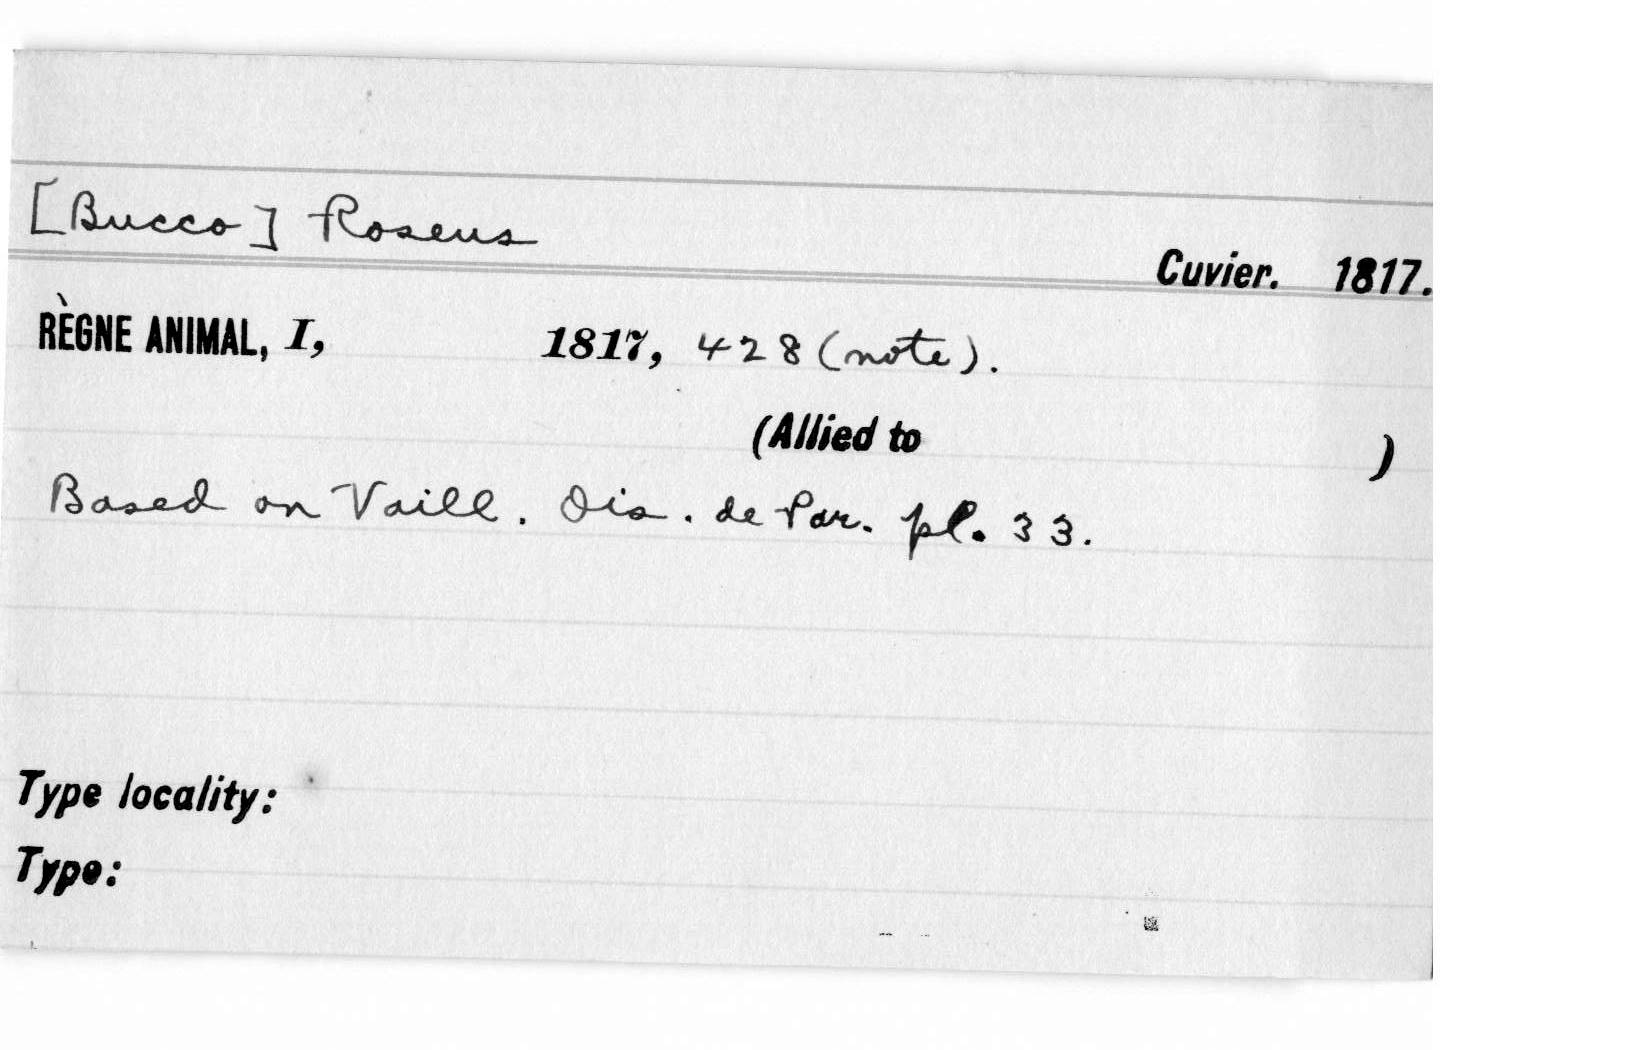 [Bucco] Roseus
Cuvier. 1817.
RÈGNE ANIMAL, I, 1817, 428 (note).
(Allied to )
Based on Vaill. Ois. de Par. pl. 33.
Type locality:
Type: